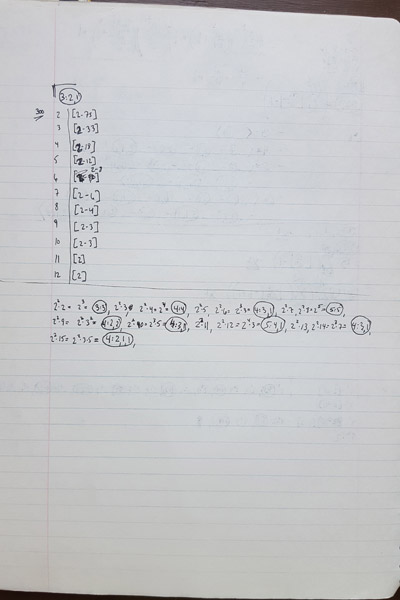 3:2,1
300 2 [2-75]
3 [2-33]
4 [2-18]
5 [2-12]
6 2-8
7 [2-6]
8 [2-4]
9 [2-3]
10 [2-3]
11 [2]
12 [2]
2²·2 = 2³ = 3:3, 2²·3, 2²·4 = 2⁴ = 4:4, 2²·5, 2²·6 = 2³·3 = 4:3,1, 2²·7, 2²·8 = 2⁵ = 5:5,
2²·9 = 2²·3² = 4:2,2, 2²·10 = 2³·5 = 4:3,1, 2²·11, 2²·12 = 2⁴·3 = 5:4,1, 2²·13, 2²·14 = 2³·7 = 4:3,1,
2²·15 = 2²·3·5 = 4:2,1,1,